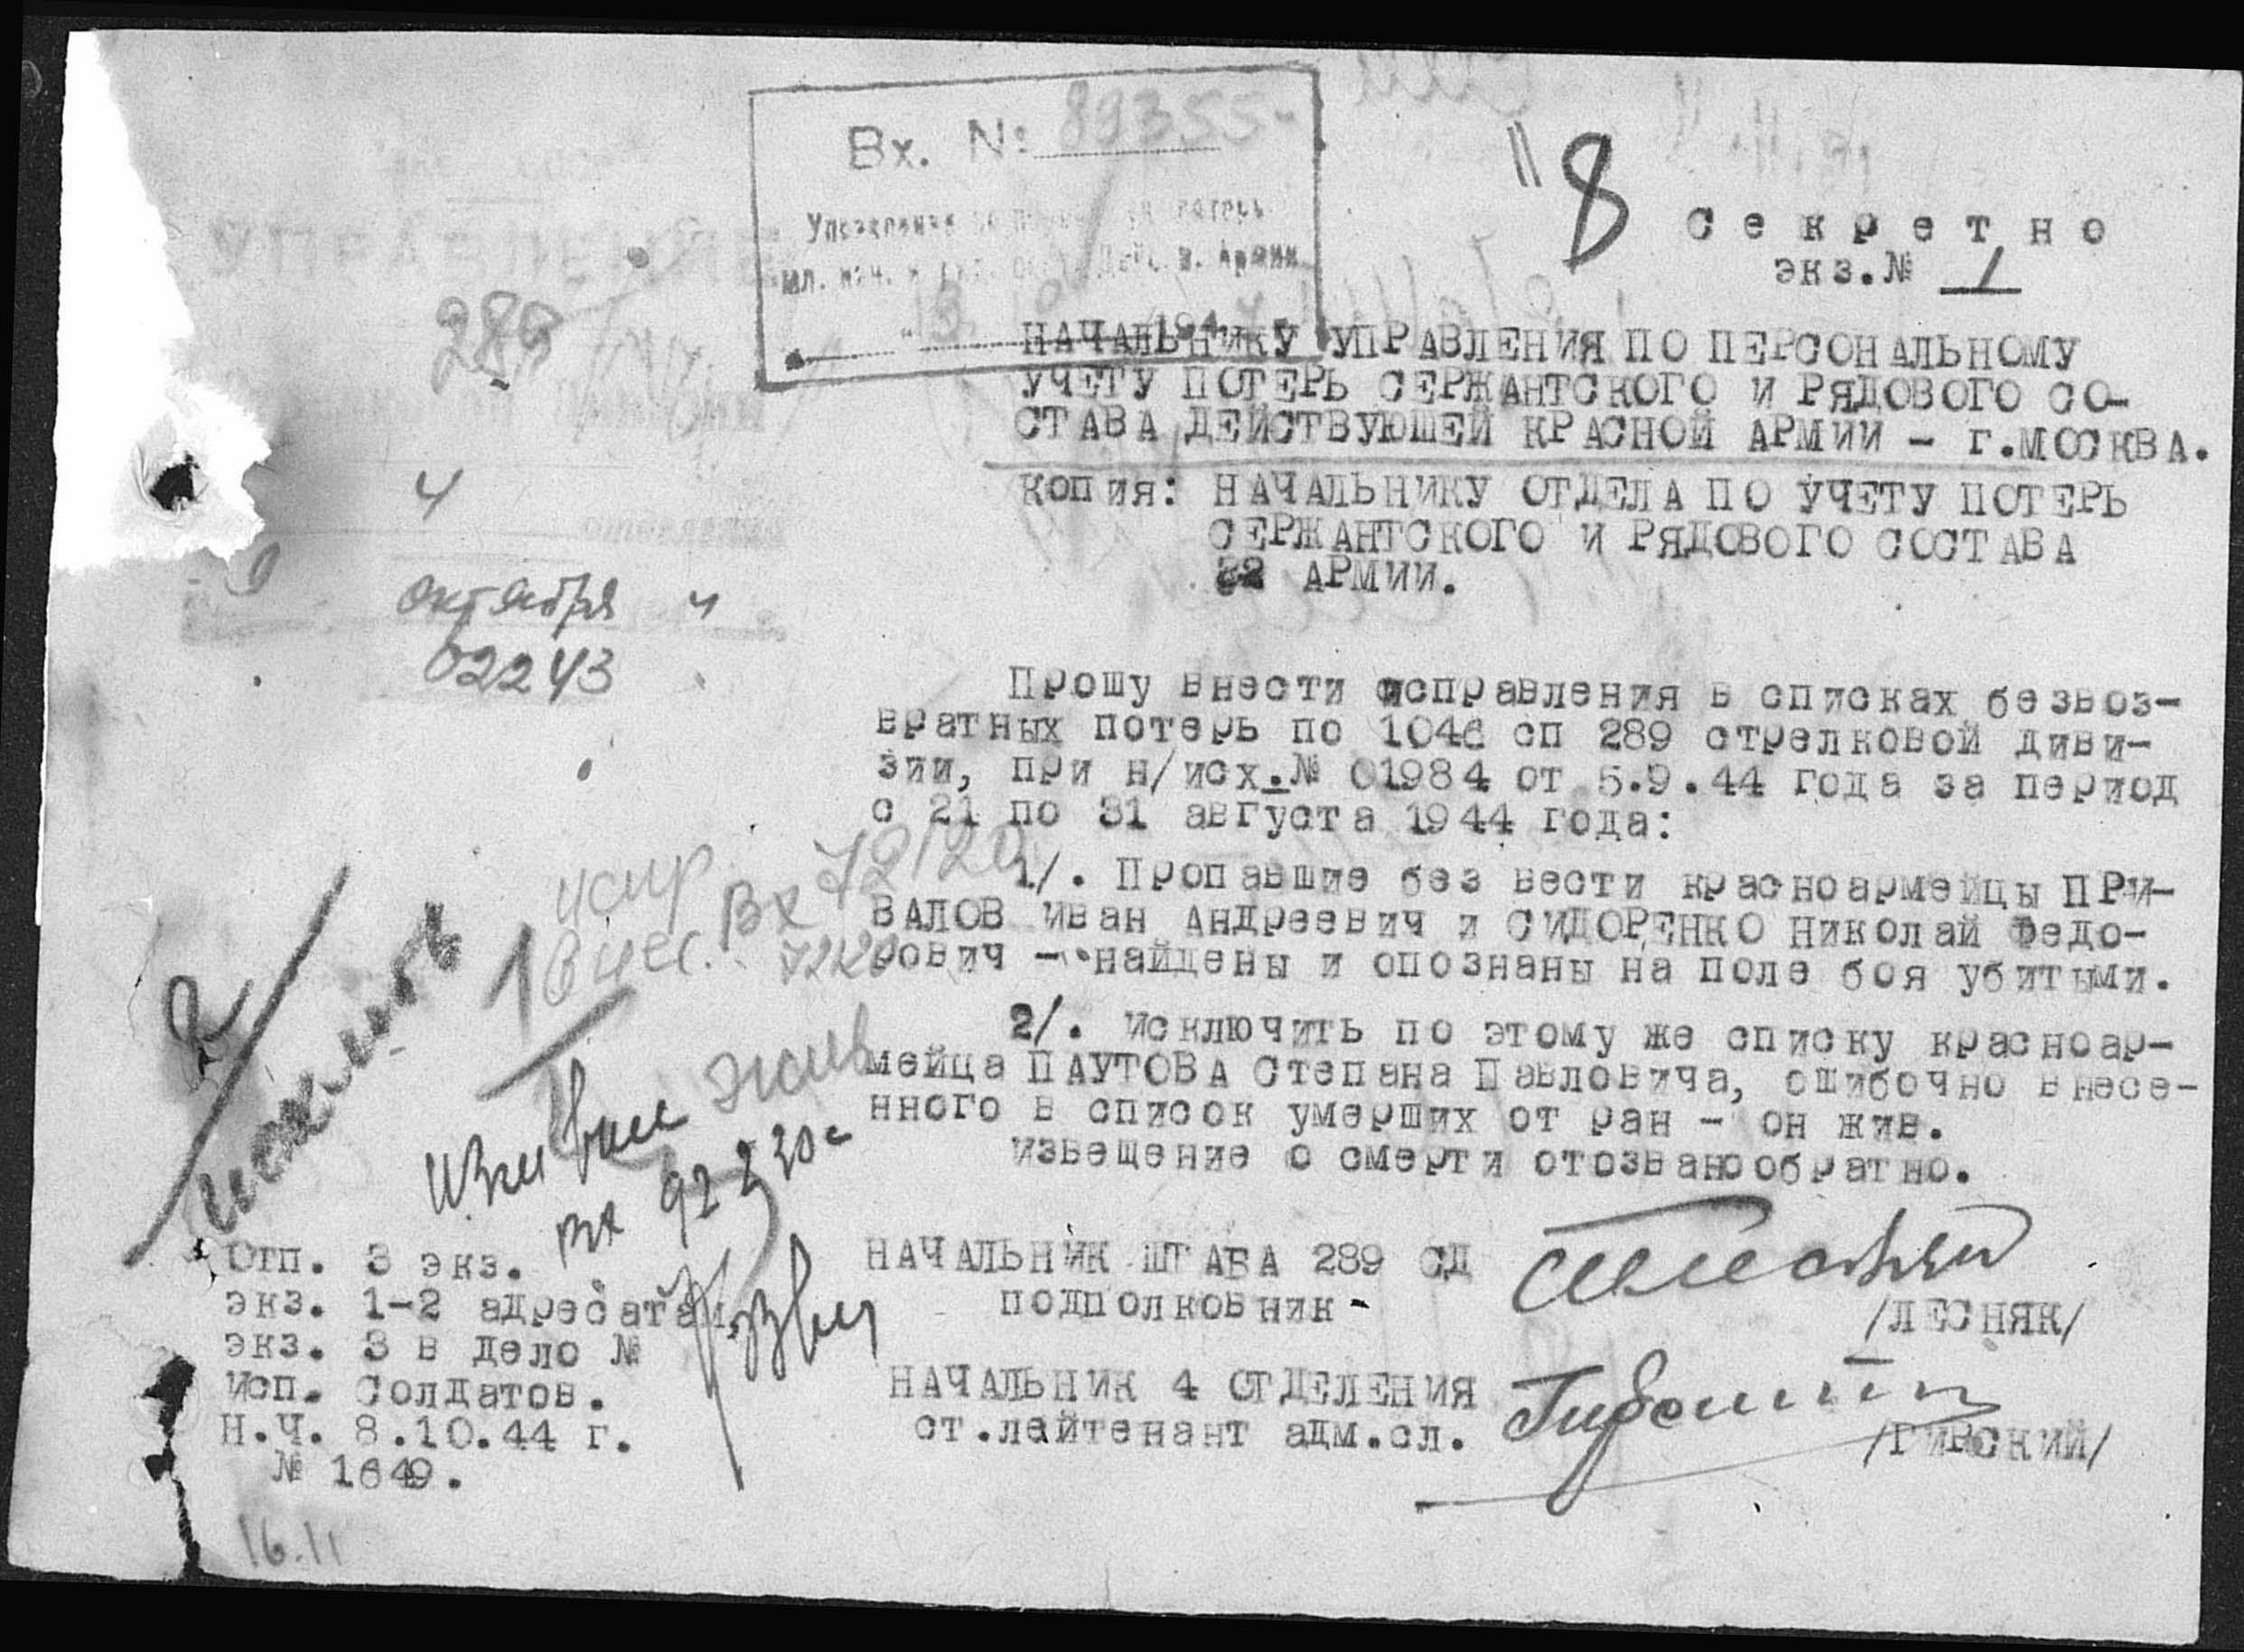 Вх. № 89355
8
Секретно
экз.№ 1
УПРАВЛЕНИЕ
289
НАЧАЛЬНИКУ УПРАВЛЕНИЯ ПО ПЕРСОНАЛЬНОМУ
УЧЕТУ ПОТЕРЬ СЕРЖАНТСКОГО И РЯДОВОГО СО-
СТАВА ДЕЙСТВУЮЩЕЙ КРАСНОЙ АРМИИ – г.МОСКВА.
4
отделение
октября 4
02243
копия: НАЧАЛЬНИКУ ОТДЕЛА ПО УЧЕТУ ПОТЕРЬ
СЕРЖАНТСКОГО И РЯДОВОГО СОСТАВА
АРМИИ.
Прошу внести исправления в списках безвоз-
вратных потерь по 1046 сп 289 стрелковой диви-
зии, при н/исх.№ 01984 от 5.9.44 года за период
с 21 по 31 августа 1944 года:
1/. Пропавшие без вести красноармейцы ПРИ-
ВАЛОВ Иван Андреевич и СИДОРЕНКО Николай Федо-
рович – найдены и опознаны на поле боя убитыми.
2/. исключить по этому же списку красноар-
мейца ПАУТОВА Степана Павловича, ошибочно внесе-
нного в список умерших от ран – он жив.
извещение о смерти отозвано обратно.
испр.
1 внес. Вх
жив
вх
Отп. 3 экз.
экз. 1-2 адресатам
экз. 3 в дело №
исп. Солдатов.
Н.Ч. 8.10.44 г.
№ 1649.
16.11
НАЧАЛЬНИК ШТАБА 289 СД
подполковник-
/ЛЕСНЯК/
НАЧАЛЬНИК 4 ОТДЕЛЕНИЯ
ст.лейтенант адм.сл.
/ГИРСКИЙ/